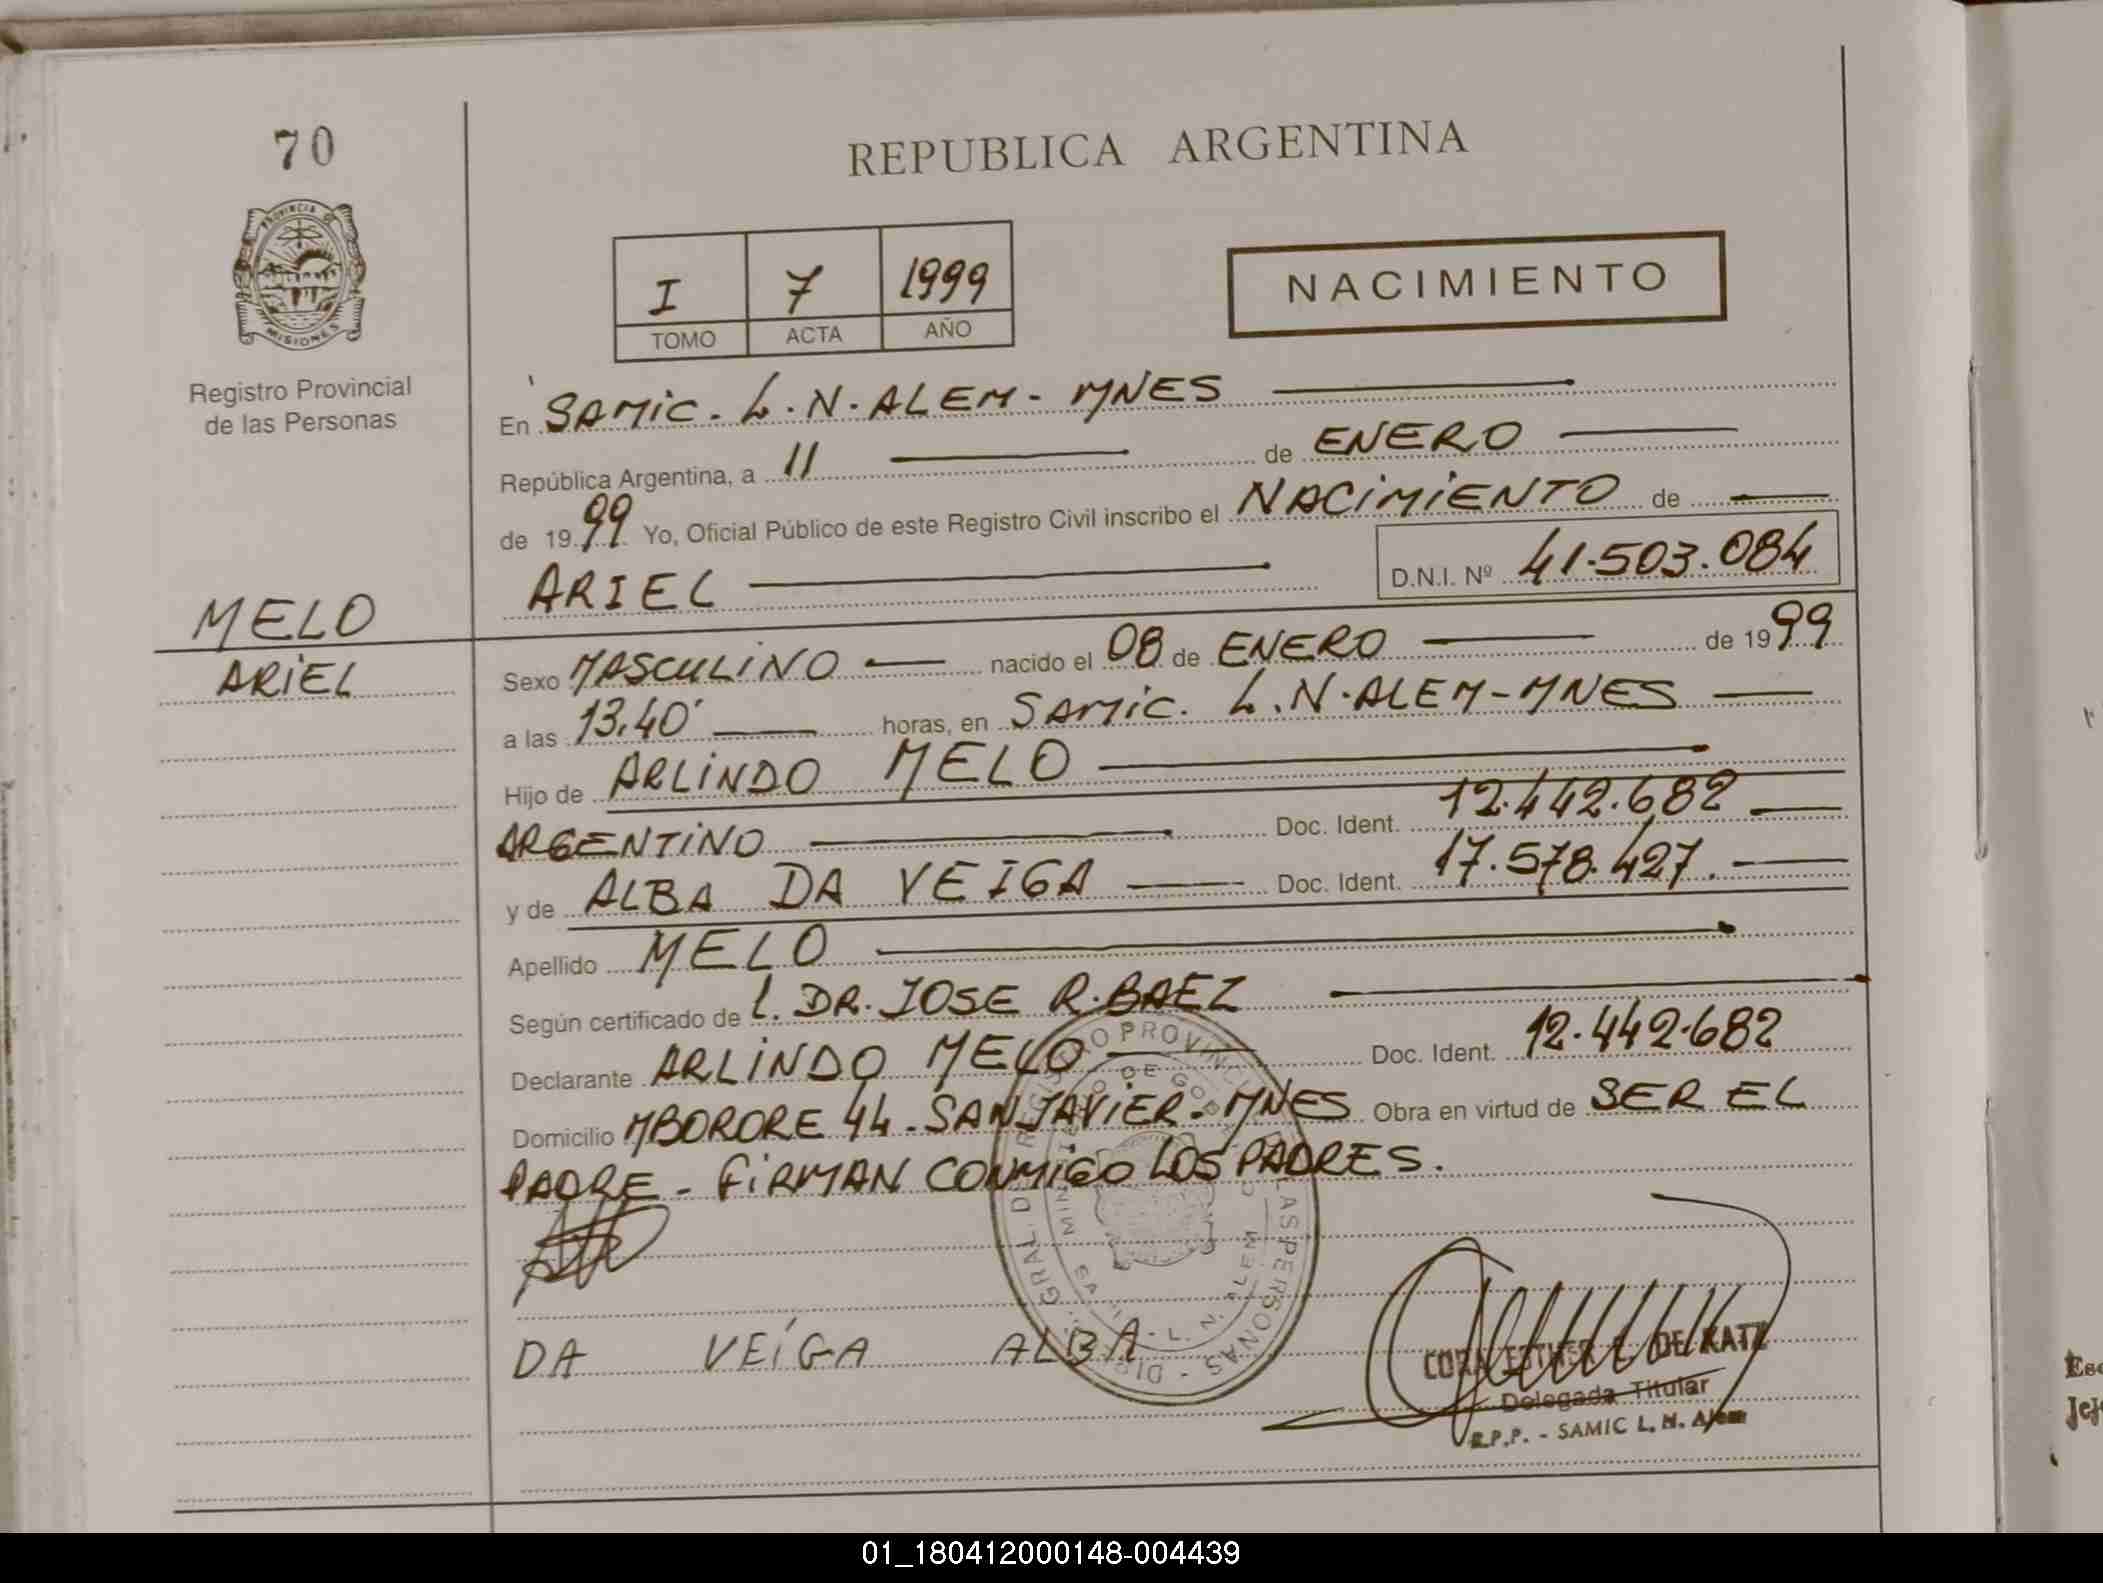 70
PROVINCIA DE
MISIONES
Registro Provincial
de las Personas
REPUBLICA ARGENTINA
I 7 1999
TOMO ACTA AÑO
NACIMIENTO
En SAMIC. L.N. ALEM - MNES
República Argentina, a 11 de ENERO
de 1999 Yo, Oficial Público de este Registro Civil inscribo el NACIMIENTO de
ARIEL D.N.I. Nº 41.503.084
MELO
ARIEL
Sexo MASCULINO nacido el 08 de ENERO de 1999
a las 13.40' horas, en SAMIC. L.N. ALEM - MNES
Hijo de ARLINDO MELO
ARGENTINO Doc. Ident. 12.442.682
y de ALBA DA VEIGA Doc. Ident. 17.578.427.
Apellido MELO
Según certificado de l. DR. JOSE R. BAEZ
Declarante ARLINDO MELO Doc. Ident. 12.442.682
Domicilio MBORORE 44 - SAN JAVIER - MNES Obra en virtud de SER EL
PADRE - FIRMAN CONMIGO LOS PADRES.
DA VEIGA ALBA
DE KATZ
Delegada Titular
R.P.P. - SAMIC L. N. Alem
01_180412000148-004439